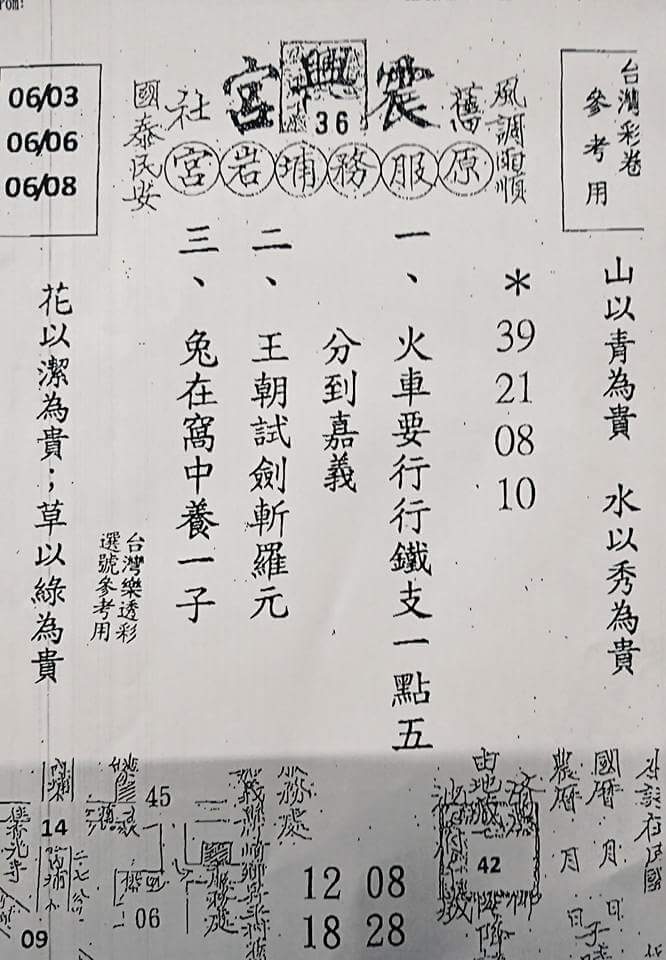 rom:
台灣彩卷
參考用
震興宮
36
風調雨順
舊
社
國泰民安
原服務埔岩宮
06/03
06/06
06/08
山以青為貴 水以秀為貴
*
39
21
08
10
一、火車要行行鐵支一點五
分到嘉義
二、王朝試劍斬羅元
三、兔在窩中養一子
台灣樂透彩
選號參考用
花以潔為貴；草以綠為貴
國曆 月 日
農曆 月 日
42
服務處
12 08
18 28
三
45
06
14
09